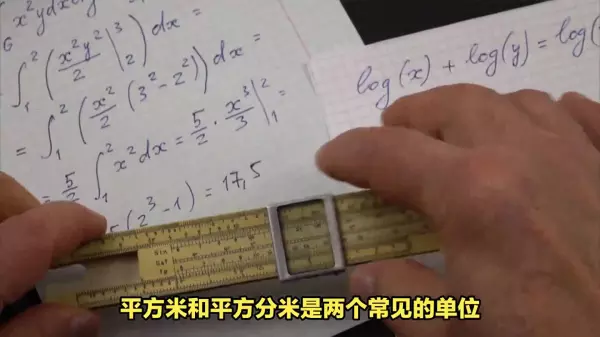 x²ydxdy
= ∫₁² (x²y²/2 |₂³) dx =
= ∫₁² (x²/2 (3² - 2²)) dx =
= 5/2 ∫₁² x² dx = 5/2 · x³/3 |₁² =
(2³ - 1) = 17,5
log(x) + log(y) = log(
平方米和平方分米是两个常见的单位